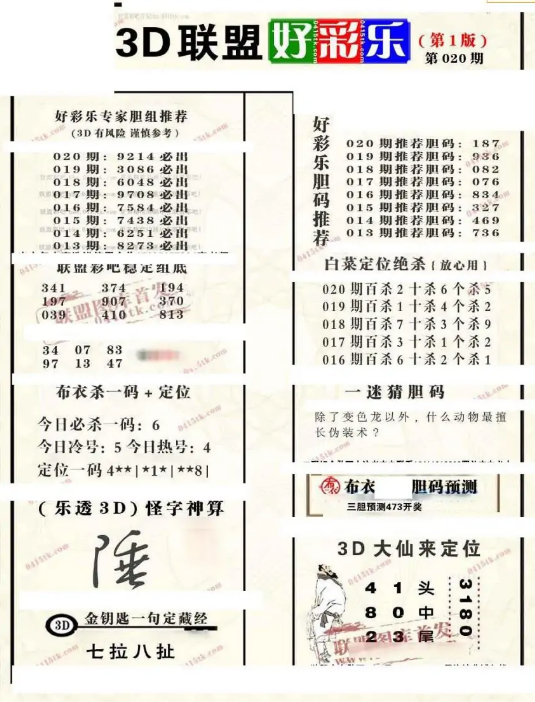 3D联盟好彩乐
(第1版)
第020期
好彩乐专家胆组推荐
(3D有风险 谨慎参考)
020期: 9214必出
019期: 3086必出
018期: 6048必出
017期: 9708必出
016期: 7584必出
015期: 7438必出
014期: 6251必出
013期: 8273必出
联盟彩吧稳定组底
341 374 194
197 907 370
039 410 813
34 07 83
97 13 47
布衣杀一码+定位
今日必杀一码: 6
今日冷号: 5 今日热号: 4
定位一码 4**|*1*|**8|
(乐透3D)怪字神算
金钥匙一句定藏经
3D
七拉八扯
好彩乐胆码推荐
020期推荐胆码: 187
019期推荐胆码: 936
018期推荐胆码: 082
017期推荐胆码: 076
016期推荐胆码: 834
015期推荐胆码: 327
014期推荐胆码: 469
013期推荐胆码: 736
白菜定位绝杀{放心用}
020期百杀2十杀6个杀5
019期百杀1十杀4个杀2
018期百杀7十杀3个杀9
017期百杀3十杀1个杀2
016期百杀6十杀2个杀1
一迷猜胆码
除了变色龙以外，什么动物最擅
长伪装术？
布衣 胆码预测
三胆预测473开奖
3D大仙来定位
4 1 头
8 0 中
2 3 尾
3180
联盟图库首发
0415tk.com